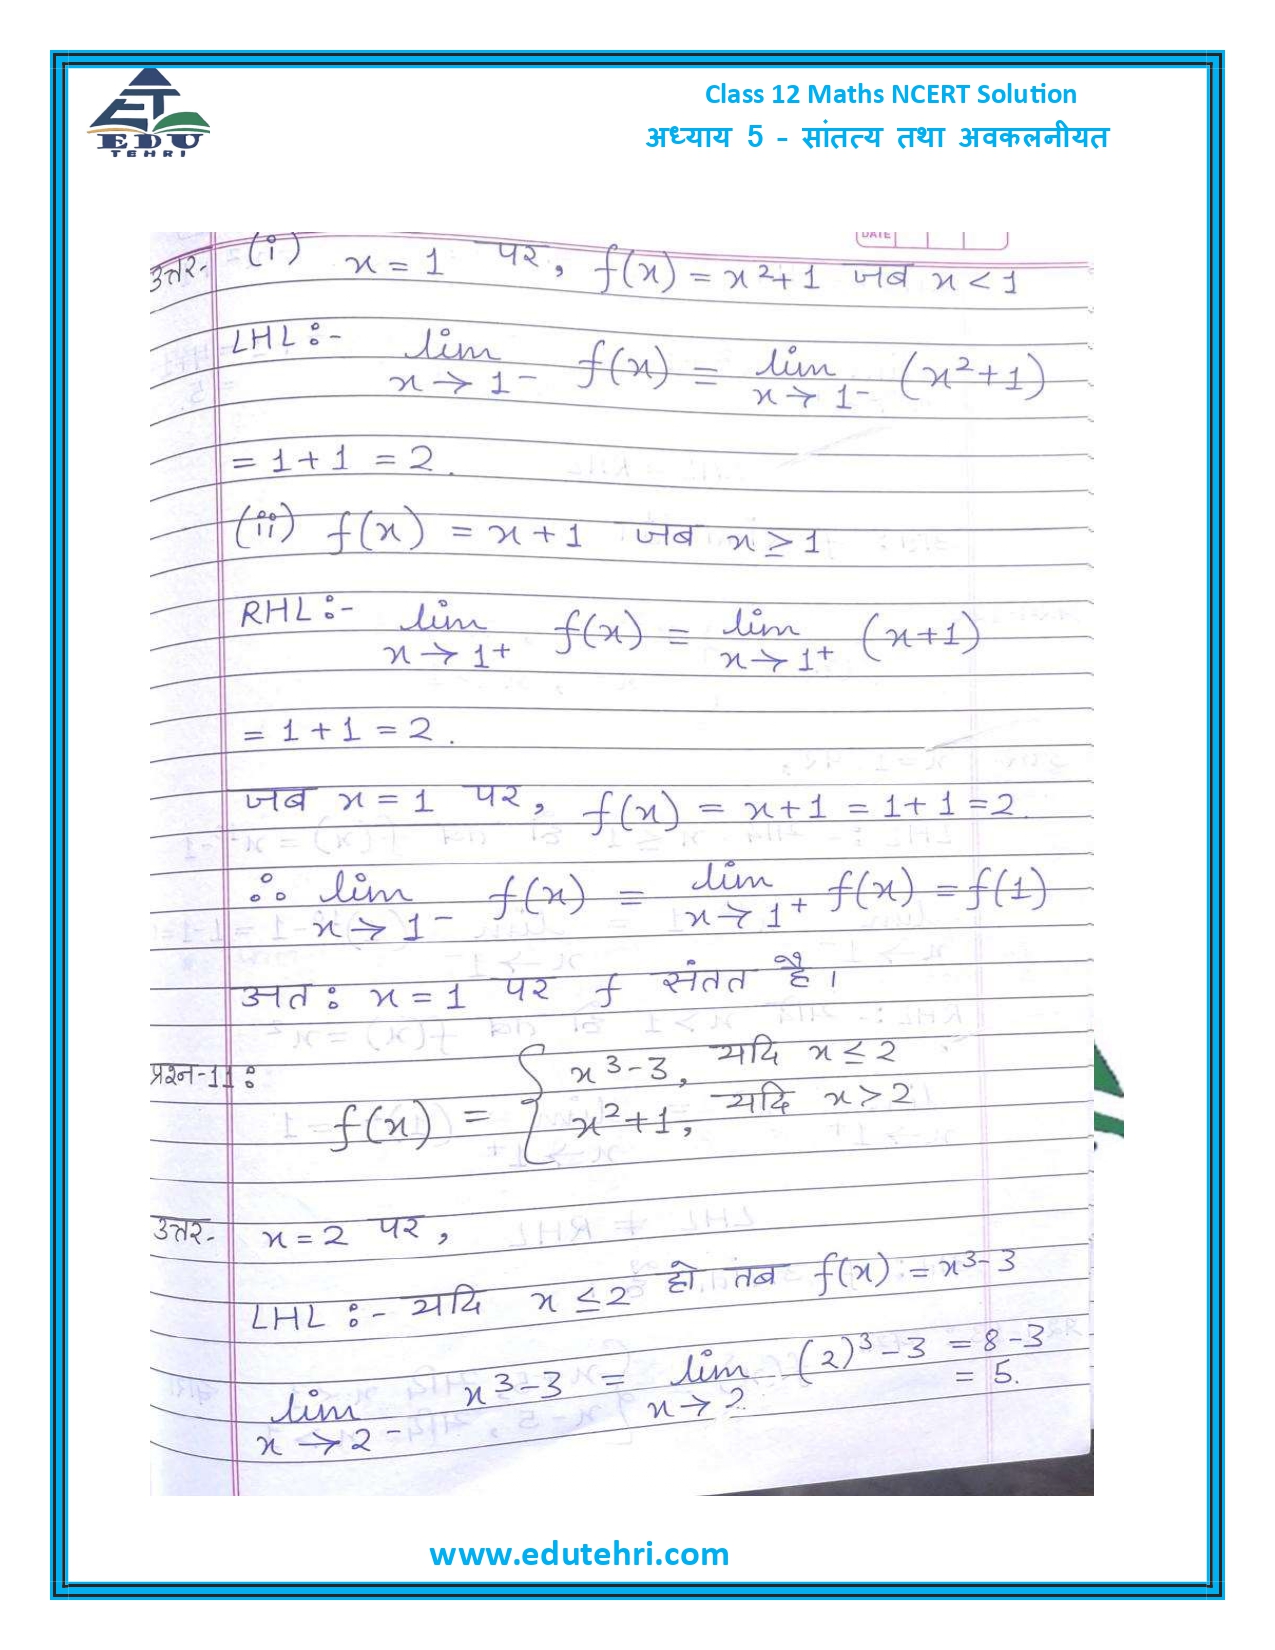 EDU
TEHRI
Class 12 Maths NCERT Solution
अध्याय 5 - सांतत्य तथा अवकलनीयत
DATE
उत्तर- (i) x = 1 पर, f(x) = x²+1 जब x < 1
LHL :- lim x→1⁻ f(x) = lim x→1⁻ (x²+1)
= 1+1 = 2.
(ii) f(x) = x+1 जब x ≥ 1
RHL :- lim x→1⁺ f(x) = lim x→1⁺ (x+1)
= 1+1 = 2.
जब x = 1 पर, f(x) = x+1 = 1+1 = 2.
∴ lim x→1⁻ f(x) = lim x→1⁺ f(x) = f(1)
अतः x = 1 पर f संतत है।
प्रश्न-11: f(x) = { x³-3, यदि x ≤ 2
x²+1, यदि x > 2
उत्तर- x = 2 पर,
LHL :- यदि x ≤ 2 हो तब f(x) = x³-3
lim x→2⁻ x³-3 = lim x→2 (2)³-3 = 8-3
= 5.
www.edutehri.com